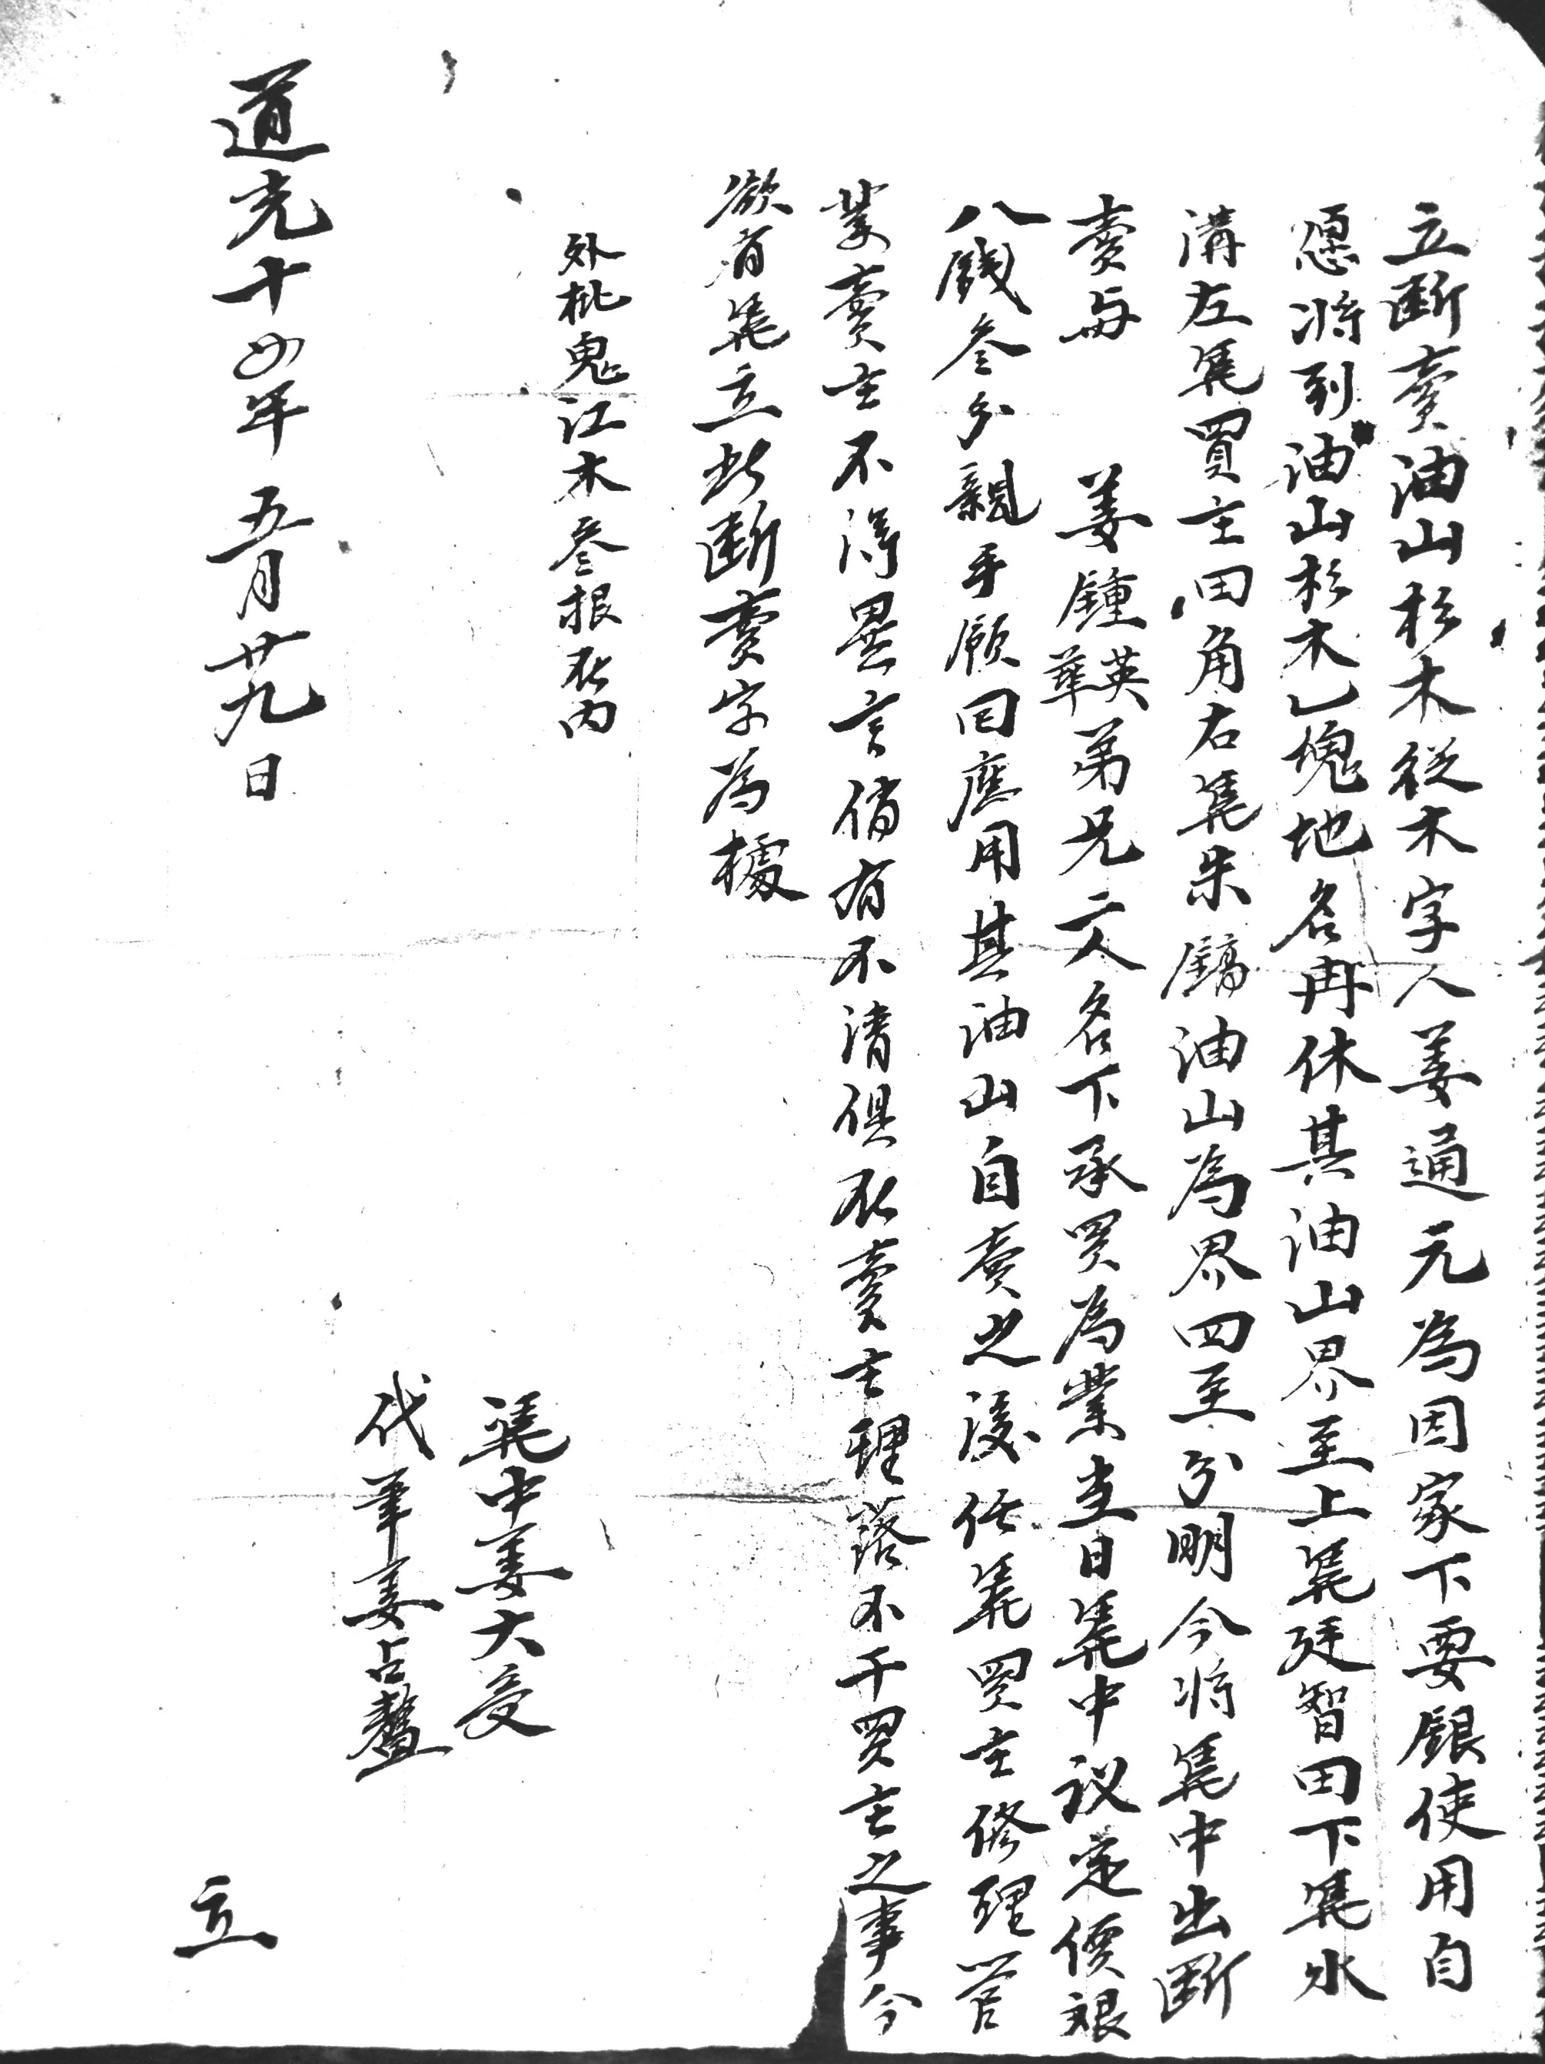 立断賣油山杉木從木字人姜通元為因家下要銀使用自
愿将到油山杉木乚塊地名冉休其油山界至上凴廷智田下凴水
溝左凴買主田角右凴朱鎬油山為界四至分明今将凴中出断
賣與 姜鍾英華弟兄二人名下承買為業当日凴中议定價銀
八錢叁分親手領回應用其油山自賣之後任凴買主修理管
業賣主不得異言倘有不清俱在賣主理落不干買主之事今
欲有凴立此断賣字為據
外批鬼江木叁根在内
凴中姜大受
代筆姜占鰲
道光十四年五月廿九日 立